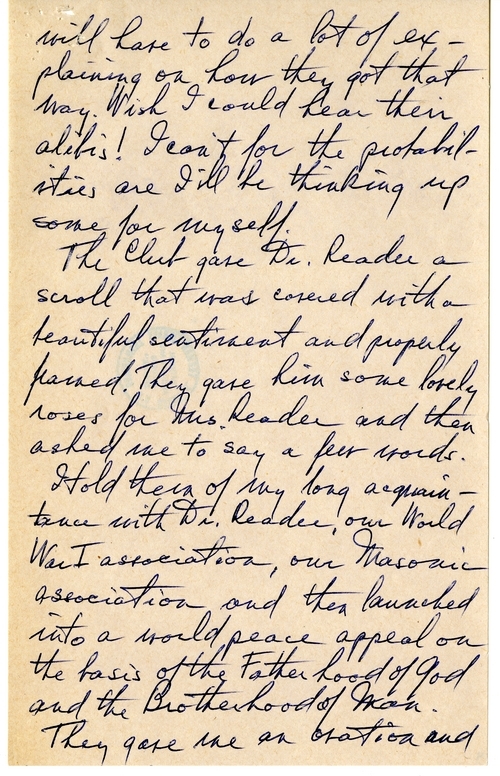 will have to do a lot of ex-
plaining on how they got that
way. Wish I could hear their
alibis! I can't for the probabil-
ities are I'll be thinking up
some for myself.
The Club gave Dr. Reader a
scroll that was covered with a
beautiful sentiment and properly
framed. They gave him some lovely
roses for Mrs. Reader and then
asked me to say a few words.
I told them of my long acquain-
tance with Dr. Reader, our World
War I association, our Masonic
association, and then launched
into a world peace appeal on
the basis of the Fatherhood of God
and the Brotherhood of Man.
They gave me an ovation and